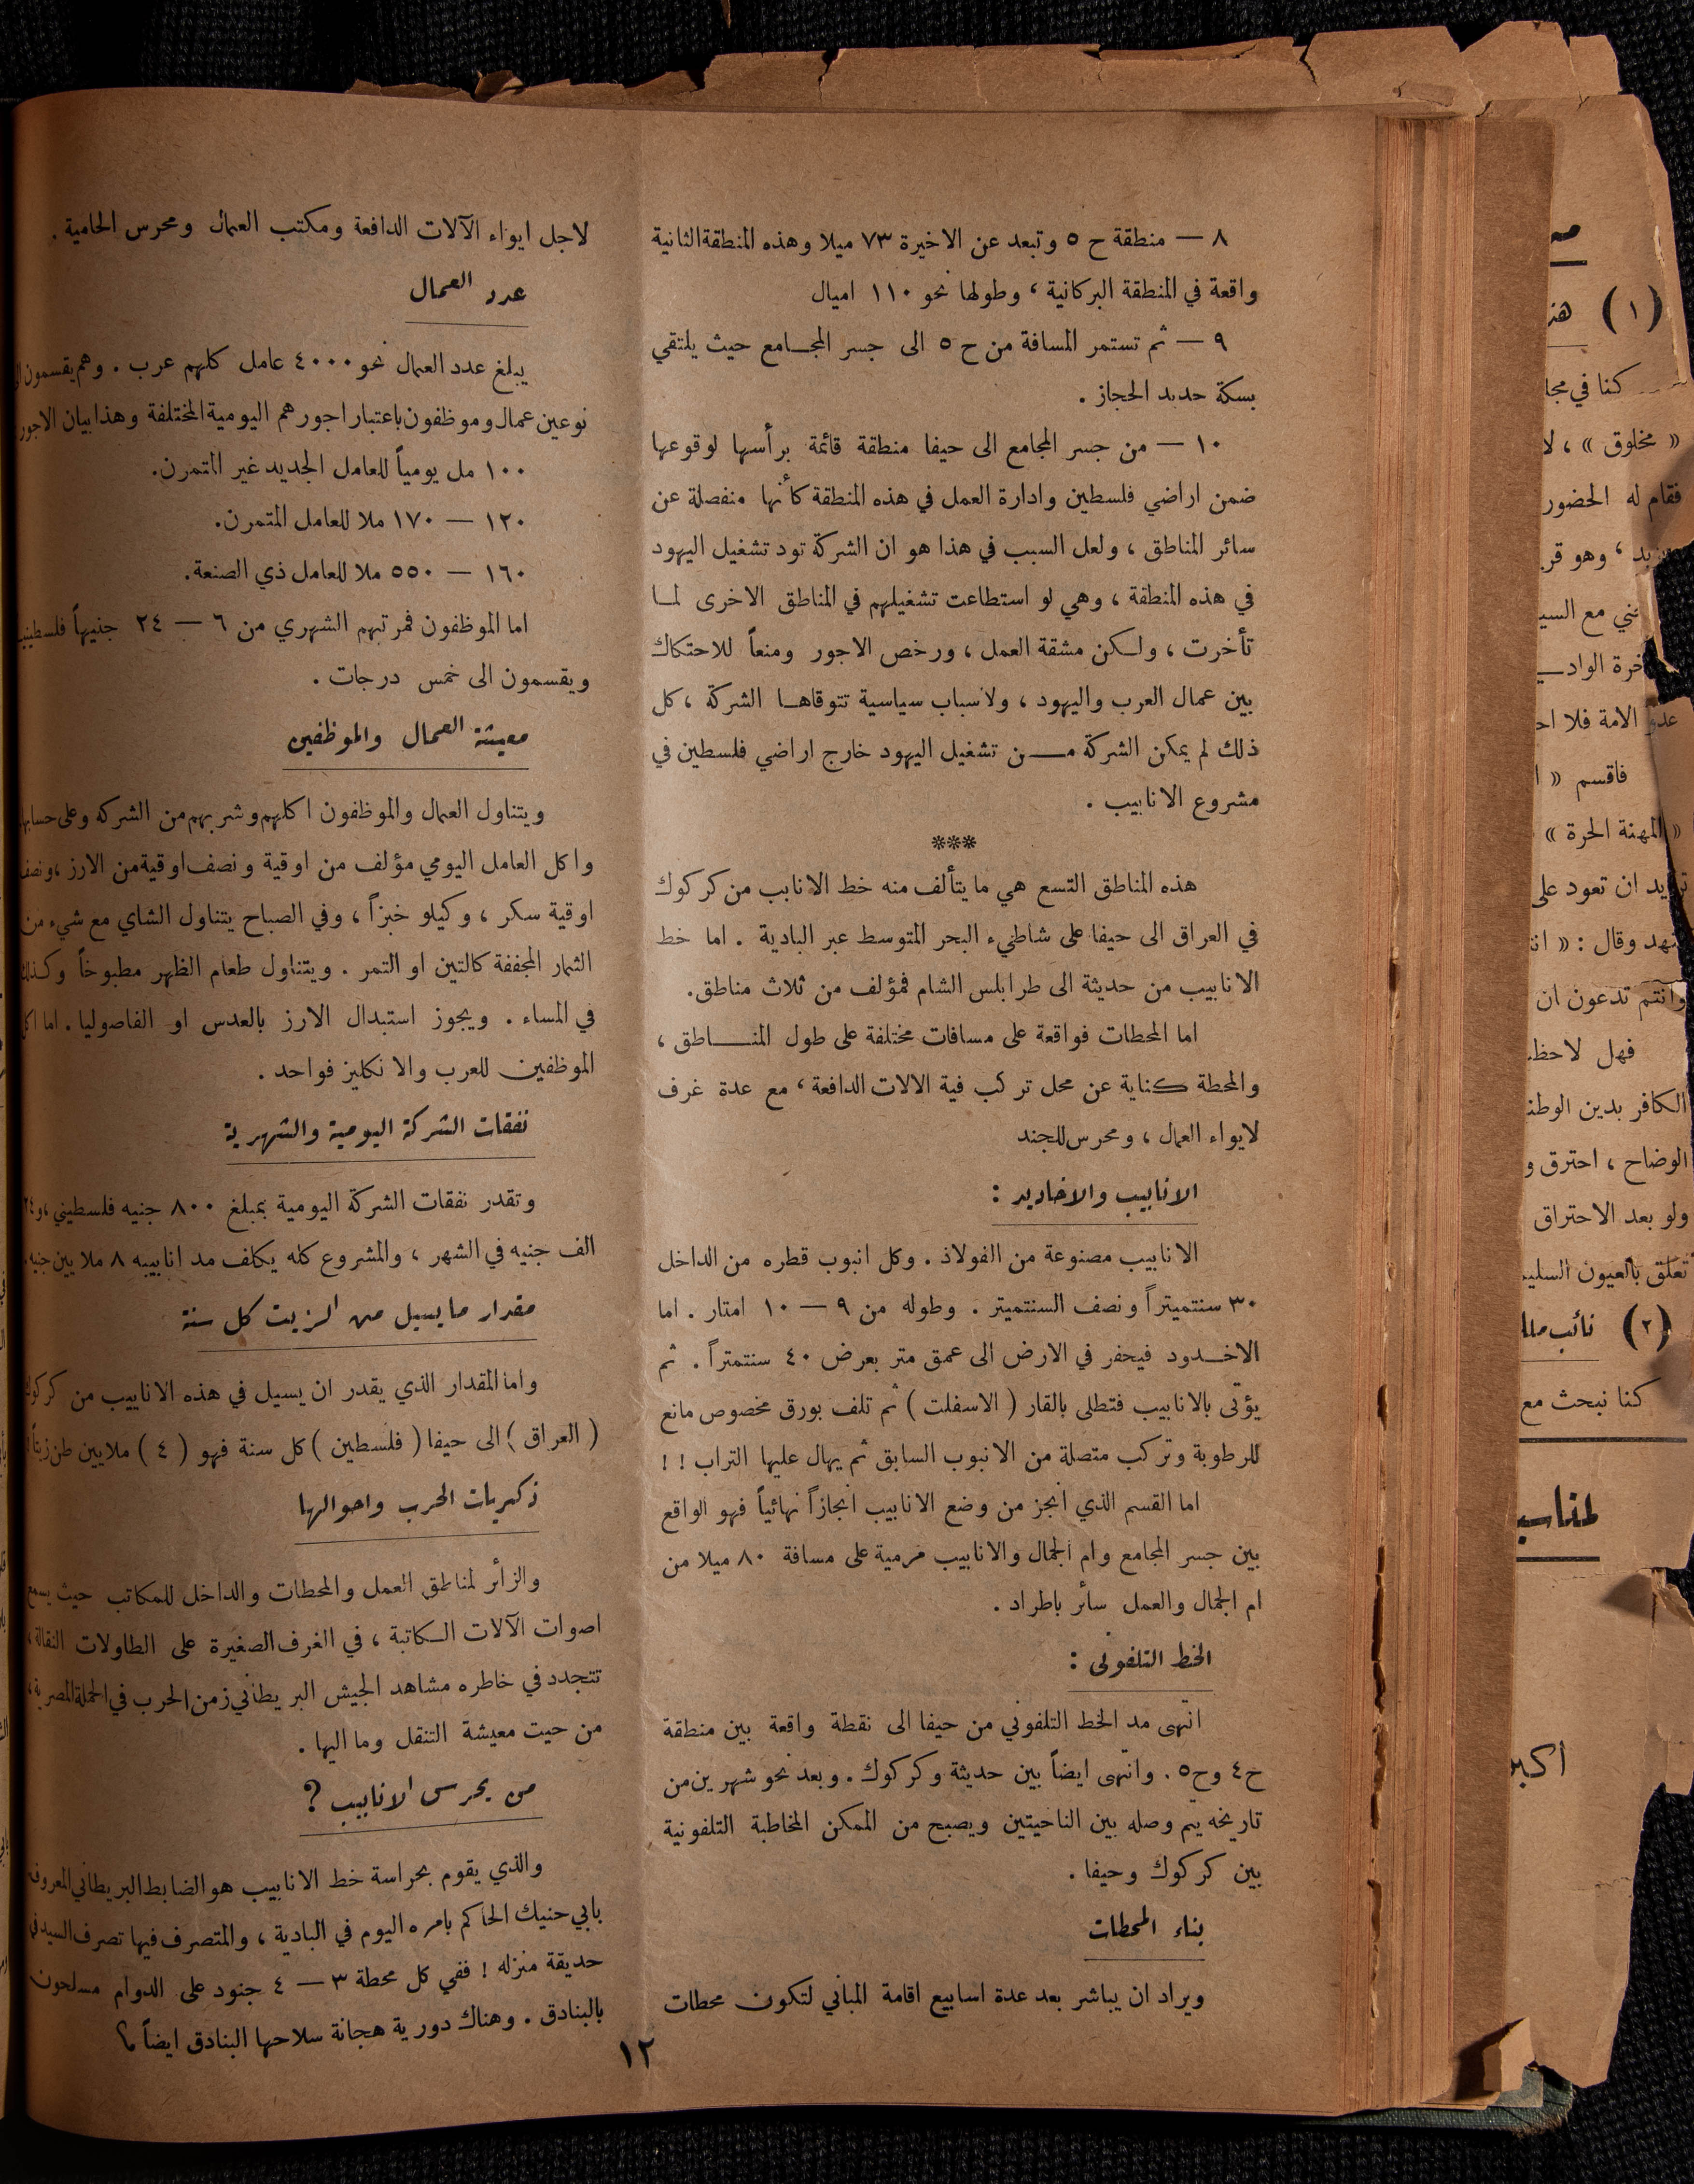 ٨ — منطقة ح ٥ وتبعد عن الاخيرة ٧٣ ميلا وهذه المنطقة الثانية
واقعة في المنطقة البركانية ، وطولها نحو ١١٠ اميال
٩ — ثم تستمر المسافة من ح ٥ الى جسر المجامع حيث يلتقي
بسكة حديد الحجاز .
١٠ — من جسر المجامع الى حيفا منطقة قائمة برأسها لوقوعها
ضمن اراضي فلسطين وادارة العمل في هذه المنطقة كأنها منفصلة عن
سائر المناطق ، ولعل السبب في هذا هو ان الشركة تود تشغيل اليهود
في هذه المنطقة ، وهي لو استطاعت تشغيلهم في المناطق الاخرى لما
تأخرت ، ولكن مشقة العمل ، ورخص الاجور ومنعاً للاحتكاك
بين عمال العرب واليهود ، ولاسباب سياسية تتوقاها الشركة ، كل
ذلك لم يمكن الشركة من تشغيل اليهود خارج اراضي فلسطين في
مشروع الانابيب .
***
هذه المناطق التسع هي ما يتألف منه خط الانابب من كركوك
في العراق الى حيفا على شاطيء البحر المتوسط عبر البادية . اما خط
الانابيب من حديثة الى طرابلس الشام فمؤلف من ثلاث مناطق .
اما المحطات فواقعة على مسافات مختلفة على طول المناطق ،
والمحطة كناية عن محل تركب فية الالات الدافعة ، مع عدة غرف
لايواء العمال ، ومحرس للجند
الانابيب والاخاديد :
الانابيب مصنوعة من الفولاذ . وكل انبوب قطره من الداخل
٣٠ سنتميتراً ونصف السنتميتر . وطوله من ٩ — ١٠ امتار . اما
الاخدود فيحفر في الارض الى عمق متر بعرض ٤٠ سنتمتراً . ثم
يؤتى بالانابيب فتطلى بالقار ( الاسفلت ) ثم تلف بورق مخصوص مانع
للرطوبة وتركب متصلة من الانبوب السابق ثم يهال عليها التراب ! !
اما القسم الذي انجز من وضع الانابيب انجازاً نهائياً فهو الواقع
بين جسر المجامع وام الجمال والانابيب مرمية على مسافة ٨٠ ميلا من
ام الجمال والعمل سائر باطراد .
الخط التلفوني :
انتهى مد الخط التلفوني من حيفا الى نقطة واقعة بين منطقة
ح٤ وح٥ . وانتهى ايضاً بين حديثة وكركوك . وبعد نحو شهرين من
تاريخه يتم وصله بين الناحيتين ويصبح من الممكن المخاطبة التلفونية
بين كركوك وحيفا .
بناء المحطات
ويراد ان يباشر بعد عدة اسابيع اقامة المباني لتكون محطات
لاجل ايواء الآلات الدافعة ومكتب العمال ومحرس الحامية .
عدد العمال
يبلغ عدد العمال نحو ٤٠٠٠ عامل كلهم عرب . وهم يقسمون
نوعين عمال وموظفون باعتبار اجورهم اليومية المختلفة وهذا بيان الاجور
١٠٠ مل يومياً للعامل الجديد غير المتمرن .
١٢٠ — ١٧٠ ملا للعامل المتمرن .
١٦٠ — ٥٥٠ ملا للعامل ذي الصنعة .
اما الموظفون فمرتبهم الشهري من ٦ — ٢٤ جنيهاً
ويقسمون الى خمس درجات .
معيشة العمال والموظفين
ويتناول العمال والموظفون اكلهم وشربهم من الشركه وعلى
واكل العامل اليومي مؤلف من اوقية ونصف اوقية من الارز ، ونصف
اوقية سكر ، وكيلو خبزاً ، وفي الصباح يتناول الشاي مع شيء من
الثمار المجففة كالتين او التمر . ويتناول طعام الظهر مطبوخاً وكذلك
في المساء . ويجوز استبدال الارز بالعدس او الفاصوليا . اما
الموظفين للعرب والانكليز فواحد .
نفقات الشركة اليومية والشهرية
وتقدر نفقات الشركة اليومية بمبلغ ٨٠٠ جنيه فلسطيني ، و٢٤
الف جنيه في الشهر ، والمشروع كله يكلف مد انابيبه ٨ ملايين جنيه .
مقدار ما يسيل من الزيت كل سنة
واما المقدار الذي يقدر ان يسيل في هذه الانابيب من كركوك
( العراق ) الى حيفا ( فلسطين ) كل سنة فهو ( ٤ ) ملايين طن
ذكريات الحرب واحوالها
والزائر لمناطق العمل والمحطات والداخل للمكاتب حيث يسمع
اصوات الآلات الكاتبة ، في الغرف الصغيرة على الطاولات النقالة ،
تتجدد في خاطره مشاهد الجيش البريطاني زمن الحرب في الحملة المصرية ،
من حيت معيشة التنقل وما اليها .
من يحرس الانابيب ؟
والذي يقوم بحراسة خط الانابيب هو الضابط البريطاني المعروف
بابي حنيك الحاكم بامره اليوم في البادية ، والمتصرف فيها تصرف السيد في
حديقة منزله ! ففي كل محطة ٣ — ٤ جنود على الدوام مسلحون
بالبنادق . وهناك دورية هجانة سلاحها البنادق ايضاً
١٢
( ١ )
كنا في
« مخلوق » ، لا
فقام له الحضور
، وهو
مع
الامة فلا
فاقسم «
« المهنة الحرة »
ان تعود على
وقال : «
وانتم تدعون ان
فهل
الكافر بدين
الوضاح ، احترق و
ولو بعد الاحتراق
تعلق بالعيون
( ٢ ) نائب
كنا نبحث مع